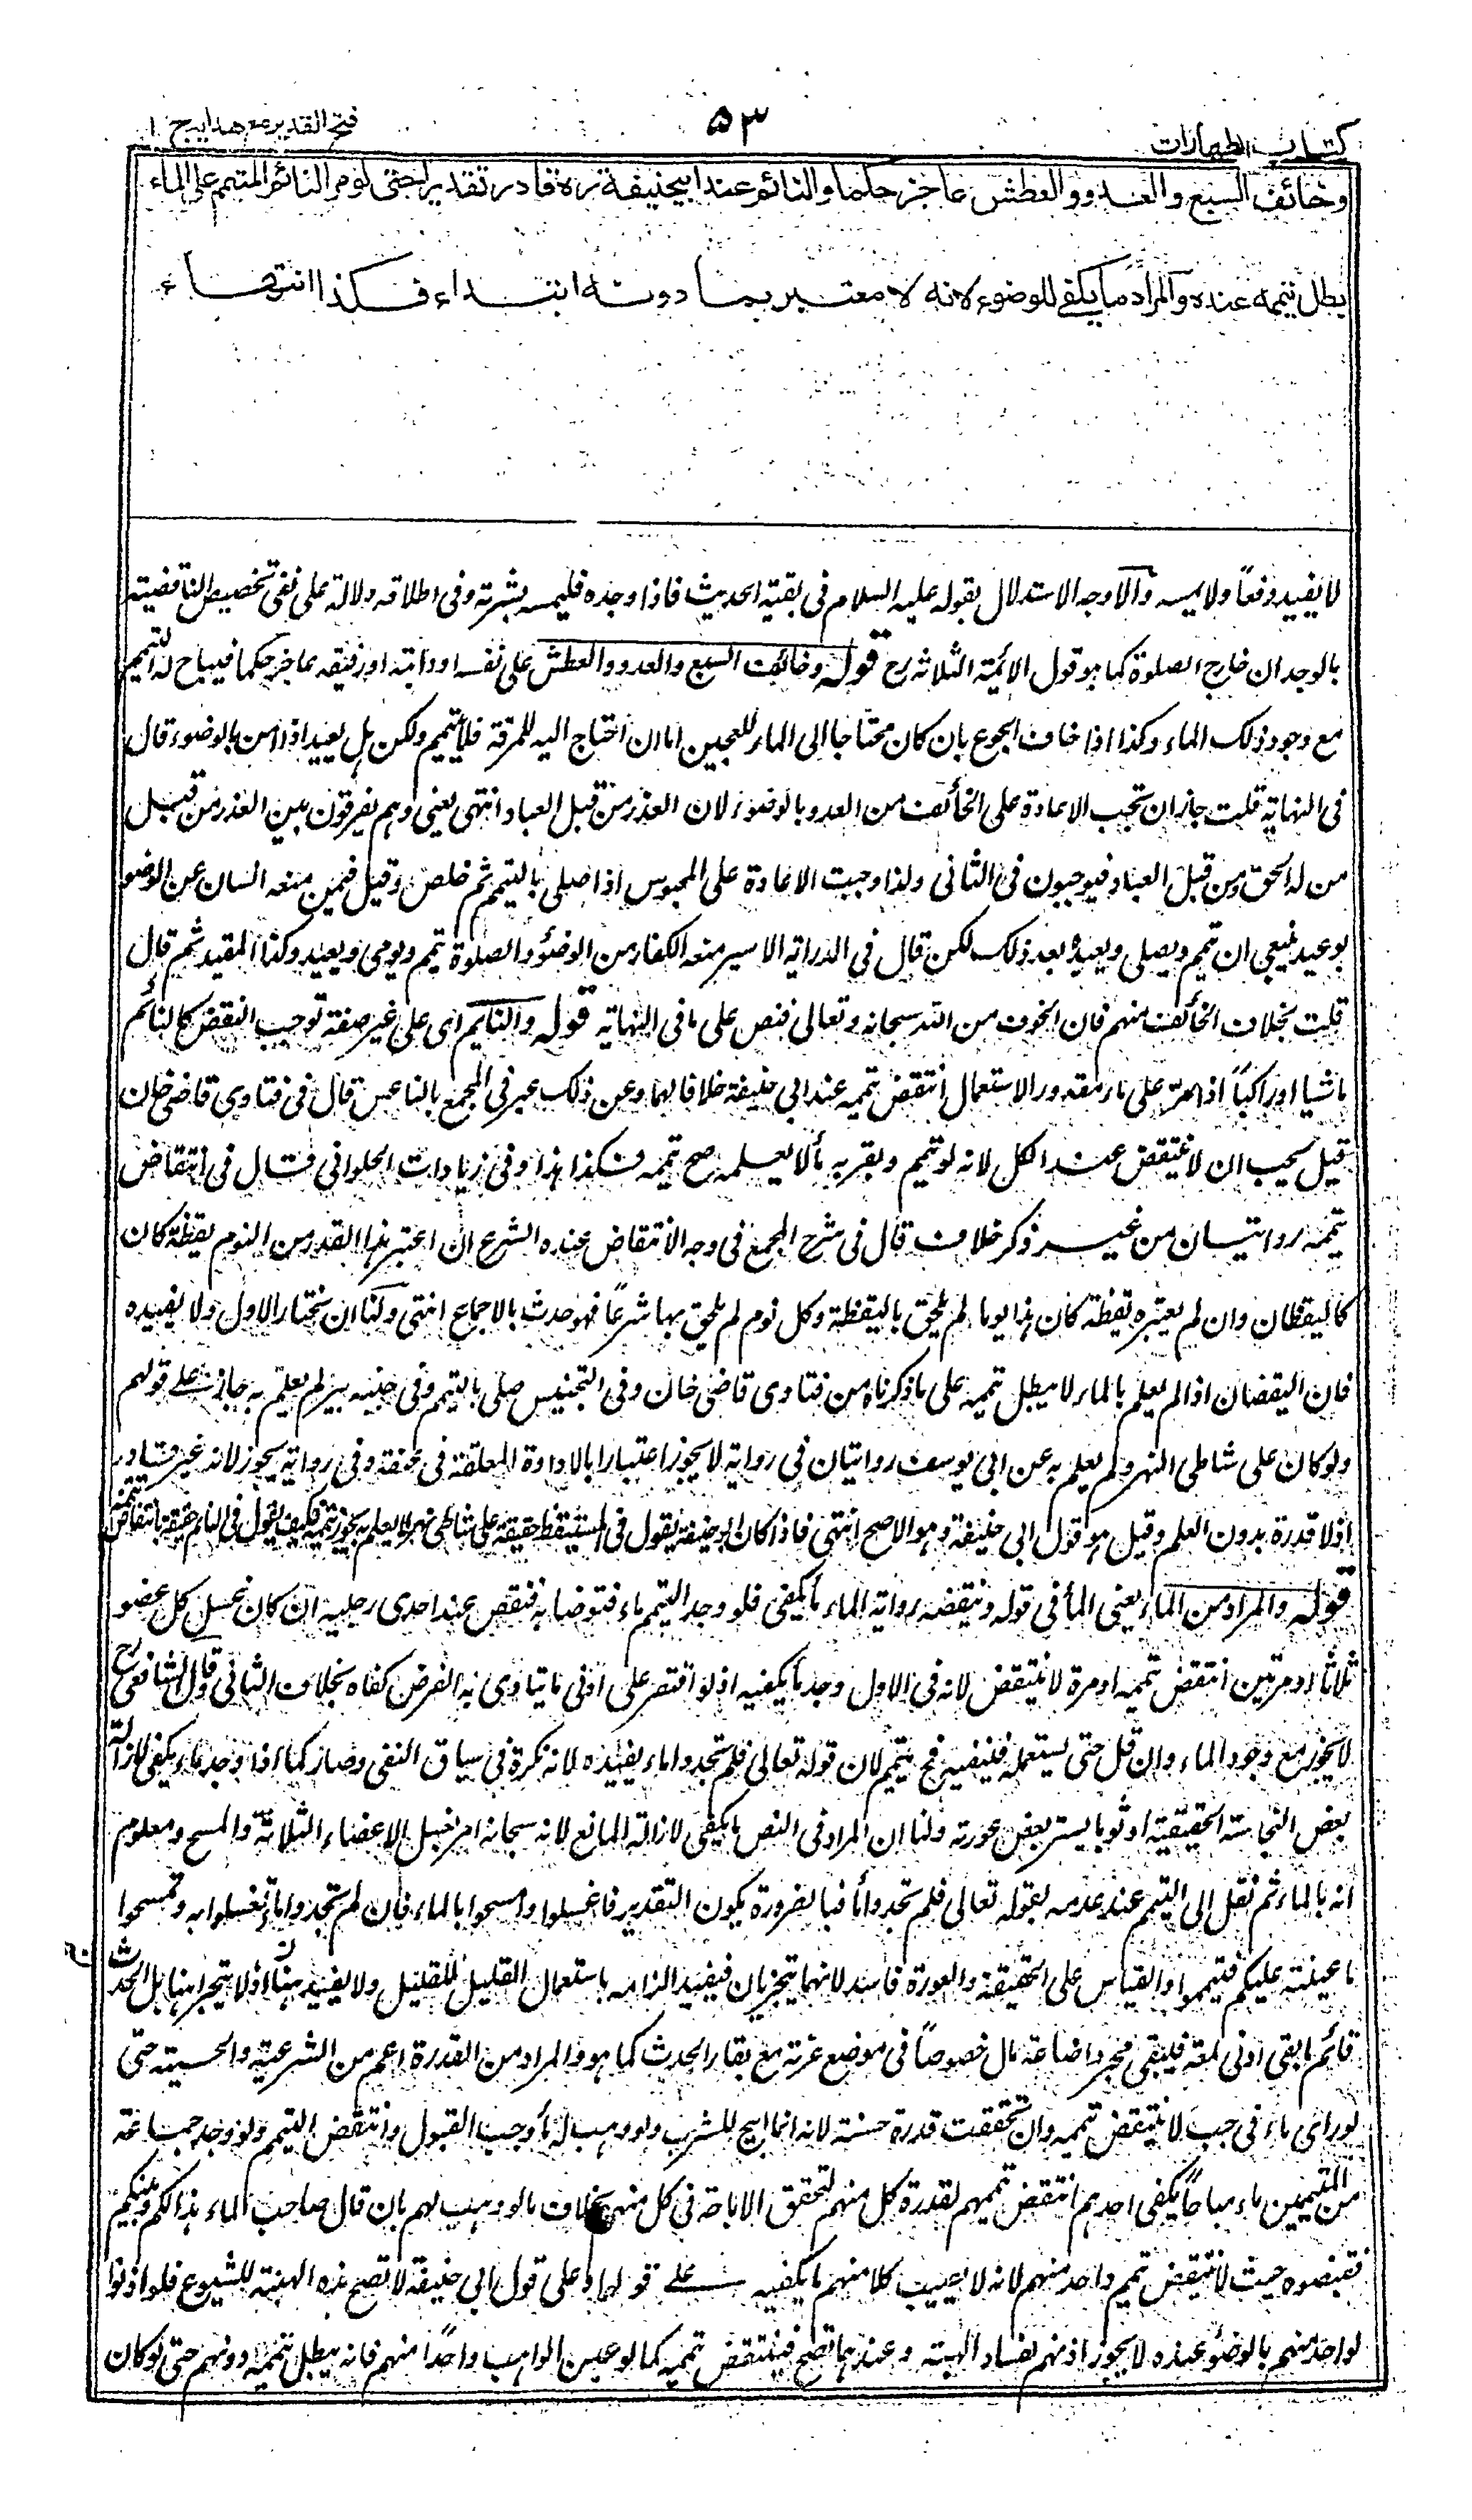 كتاب الطهارات
۵۳
فتح القدير مع هدايہ ج ١
وخائف السبع والعدو والعطش عاجز حكما والنائم عند ابيحنيفة ره قادر تقديرا حتى لو مر النائم المتيمم على الماء
بطل تيممه عنده والمراد ما يكفي للوضوء لانه لا معتبر بما دونه ابتداء فكذا انتهاء
لا يفيد دفعاً ولا يمسه والاوجه الاستدلال بقوله عليه السلام فى بقية الحديث فاذا وجده فليمسه بشرته وفى اطلاقه دلالة على نفى تخصيص الناقضية
بالوجدان خارج الصلوة كما هو قول الائمة الثلاثة رح قوله وخائف السبع والعدو والعطش على نفسه او دابته او رفيقه عاجز حكما فيباح له التيمم
مع وجود ذلك الماء وكذا اذا خاف الجوع بان كان محتاجا الى الماء للعجين اما ان احتاج اليه للمرقة فلا يتيمم ولكن هل يعيد اذا امن بالوضوء قال
فى النهاية قلت جاز ان تجب الاعادة على الخائف من العدو بالوضوء لان العذر من قبل العباد انتهى يعنى وهم يفرقون بين العذر من قبل
من له الحق ومن قبل العباد فيوجبون فى الثانى ولذا وجبت الاعادة على المحبوس اذا صلى بالتيمم ثم خلص وقيل فيمن منعه انسان عن الوضو
بوعيد ينبغى ان تيمم ويصلى ويعيده بعد ذلك لكن قال فى الدراية الاسير منعه الكفار من الوضؤ والصلوة تيمم ويومى ويعيد وكذا المقيد ثم قال
قلت بخلاف الخائف منهم فان الخوف من الله سبحانه وتعالى فنص على ما فى النهاية قوله والنايم اى على غير صفة توجب النقض كالنائم
ماشيا او راكباً اذا مر على ماء مقدور الاستعمال انتقض تيممه عند ابى حنيفة خلافا لهما وعن ذلك عبر فى المجمع بالناعس قال فى فتاوى قاضى خان
قيل يجب ان لا ينتقض عند الكل لانه لو تيمم وبقربه ماء لا يعلمه صح تيممه فكذا هذا وفى زيادات الحلوانى قال فى انتقاض
تيممه روايتان من غير ذكر خلاف قال فى شرح المجمع فى وجه الانتقاض عنده الشرع ان اعتبر هذا القدر من النوم يقظة كان
كاليقظان وان لم يعتبره يقظة كان هذا يوما لم يلحق باليقظة وكل نوم لم يلحق بها شرعاً فهو حدث بالاجماع انتهى ولنا ان نختار الاول ولا يفيده
فان اليقضان اذا لم يعلم بالماء لا يبطل تيممه على ما ذكرناه من فتاوى قاضى خان وفى التجنيس صلى بالتيمم وفى جنبه بير لم يعلم به جاز على قولهم
ولو كان على شاطى النهر ولم يعلم به عن ابى يوسف روايتان فى رواية لا يجوز اعتبارا بالاداوة المعلقة فى عنقه وفى رواية يجوز لانه غير قادر
اذ لا قدرة بدون العلم وقيل هو قول ابى حنيفة وهو الاصح انتهى فاذا كان ابو حنيفة يقول فى المستيقظ حقيقة على شاطى نهر لا يعلم به يجوز تيممه فكيف يقول فى النايم حقيقة بانتقاض تيممه
قوله والمراد من الماء يعنى الماء فى قوله وينقضه رواية الماء ما يكفى فلو وجد المتيمم ماء فتوضا به فنقص عند احدى رجليه ان كان غسل كل عضو
ثلاثا او مرتين انتقض تيممه او مرة لا ينتقض لانه فى الاول وجد ما يكفيه اذ لو اقتصر على ادنى ما يتادى به الفرض كفاه بخلاف الثانى وقال الشافعى رح
لا يجوز مع وجود الماء وان قل حتى يستعمله فيفنيه فح يتيمم لان قوله تعالى فلم تجدوا ماء يفيده لانه نكرة فى سياق النفى وصار كما اذا وجد ماء يكفى لازالة
بعض النجاسة الحقيقية او ثوبا يستر بعض عورته ولنا ان المراد فى النص ما يكفى لازالة المانع لانه سبحانه امر بغسل الاعضاء الثلاثة والمسح ومعلوم
انه بالماء ثم نقل الى التيمم عند عدمه بقوله تعالى فلم تجدوا ماء فبالضرورة يكون التقدير فاغسلوا وامسحوا بالماء فان لم تجدوا ماء تغسلوا به وتمسحوا
ما عينته عليكم فتيمموا والقياس على الحقيقة والعورة فاسد لانهما يتجزيان فيفيد الزامه باستعمال القليل للقليل ولا يفيد هنا اذ لا يتجزا هنا بل الحدث
قائم ما بقى ادنى لمعة فيبقى مجرد اضاعة مال خصوصاً فى موضع عزته مع بقاء الحدث كما هو والمراد من القدرة اعم من الشرعية والحسية حتى
لو راى ماء فى حب لا ينتقض تيممه وان تحققت قدرة حسنة لانه انما ابيح للشرب ولو وهب له ماء وجب القبول وانتقض التيمم ولو وجد جماعة
من المتيممين ماء مباحاً يكفى احدهم انتقض تيممهم لقدرة كل منهم لتحقق الاباحة فى كل منهم بخلاف ما لو وهب لهم بان قال صاحب الماء هذا لكم او بينكم
فقبضوه حيث لا ينتقض تيمم واحد منهم لانه لا يصيب كلا منهم ما يكفيه على قولهما وعلى قول ابى حنيفة لا تصح هذه الهبة للشيوع فلو اذنوا
لواحد منهم بالوضؤ عنده لا يجوز اذنهم لفساد الهبة وعندهما تصح فينتقض تيممه كما لو عين الواهب واحدا منهم فانه يبطل تيممه دونهم حتى لو كان